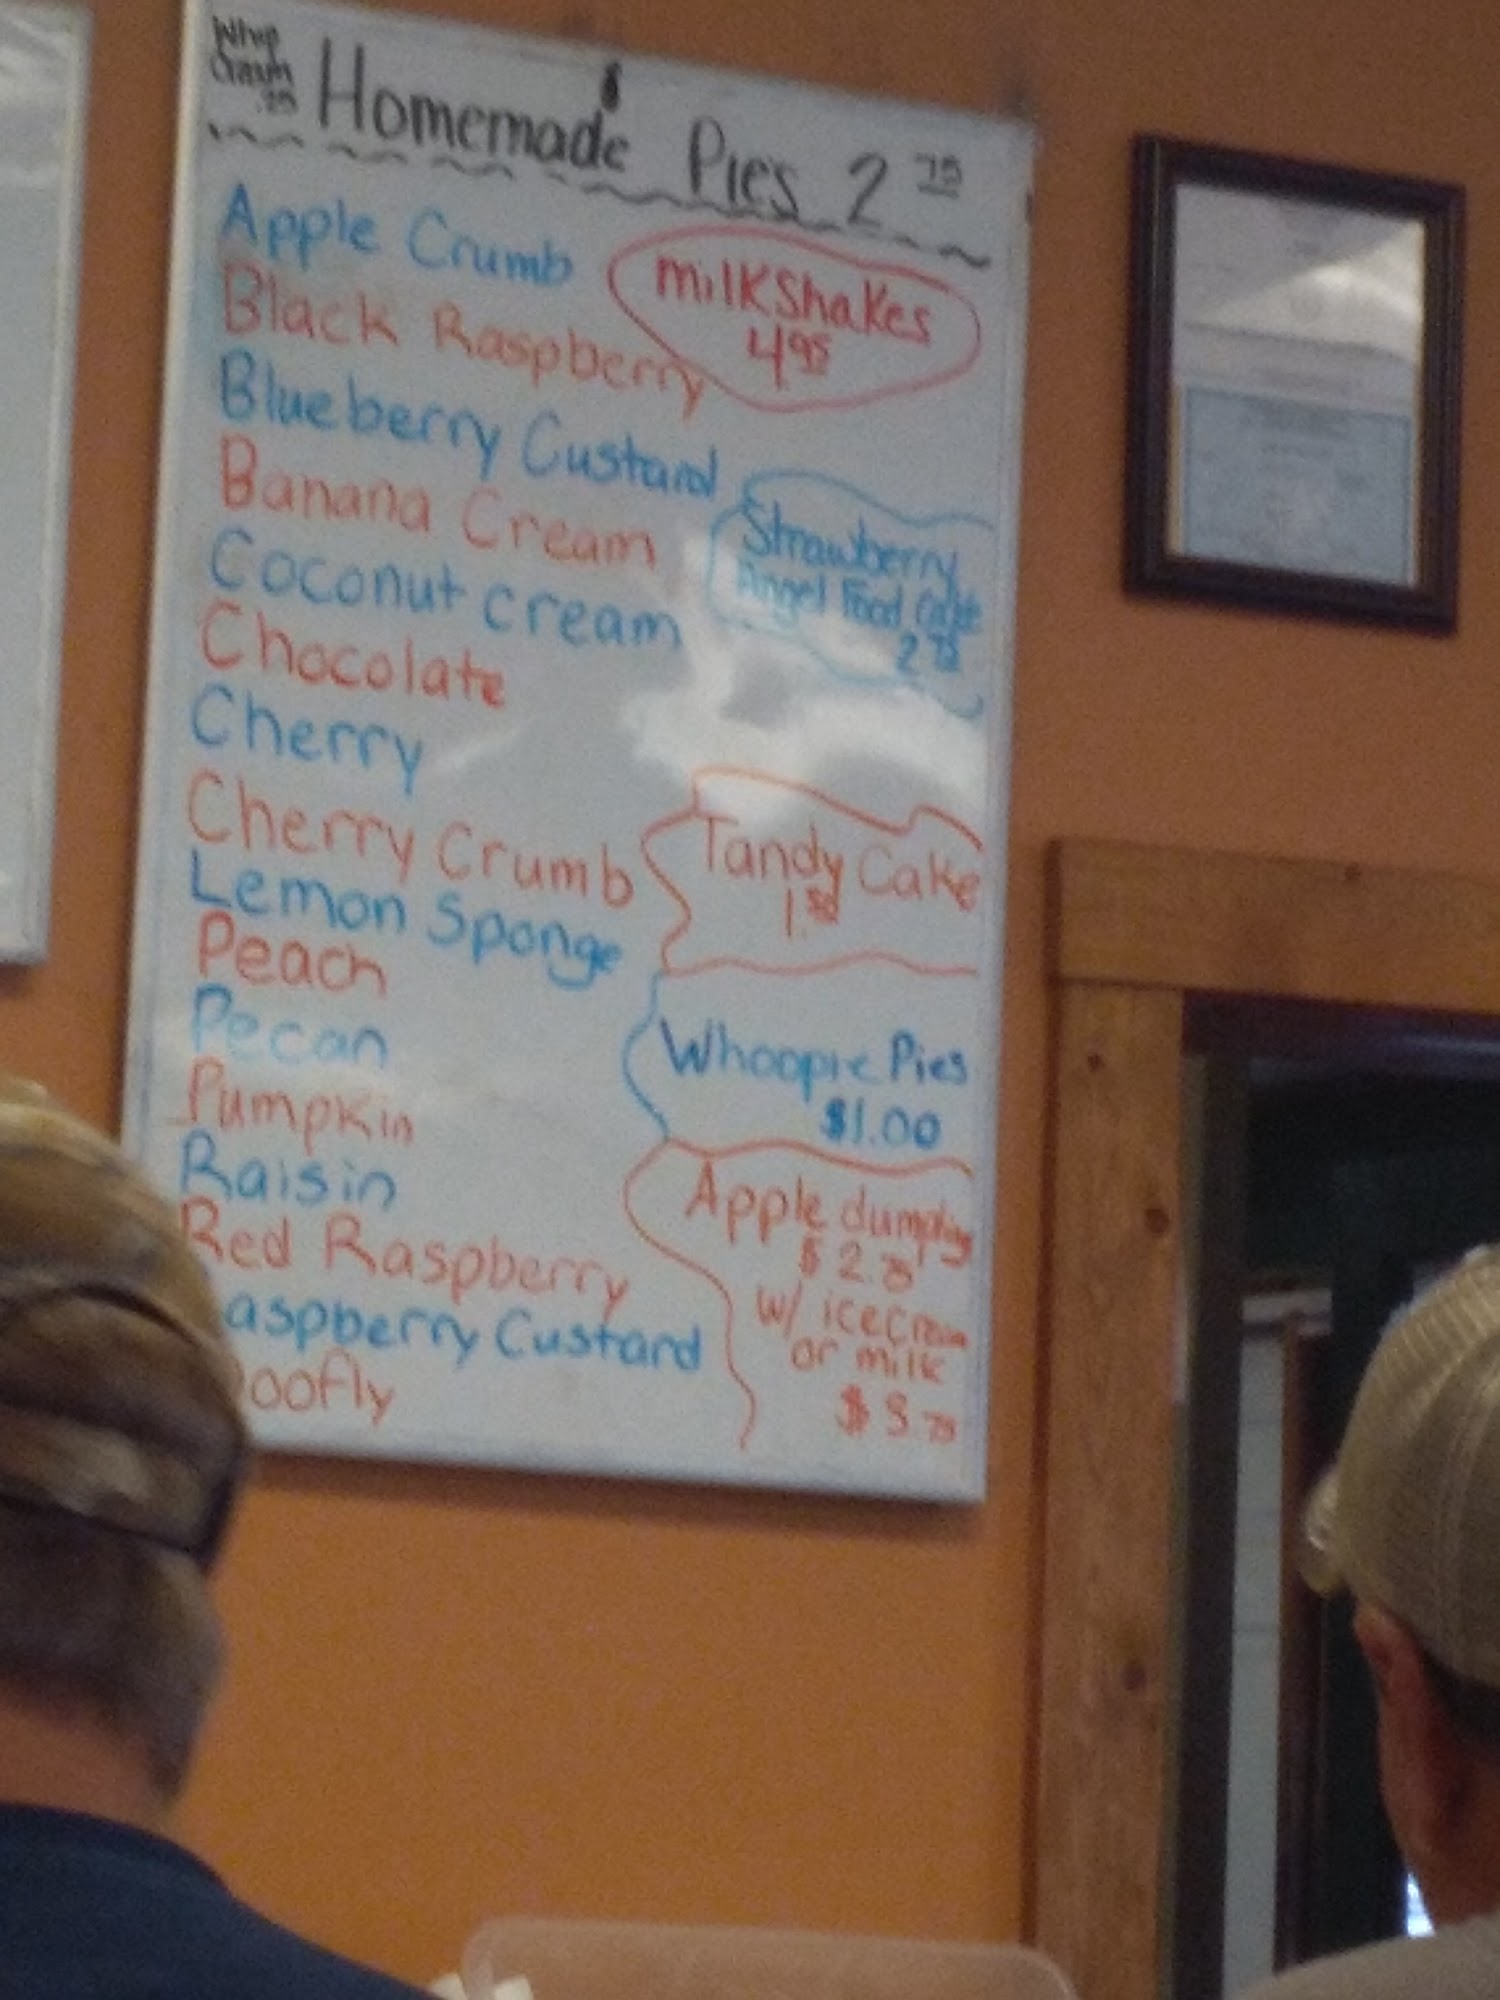 Whip
Cream
.75
Homemade Pies 2 75
Apple Crumb
Black Raspberry
Blueberry Custard
Banana Cream
Coconut cream
Chocolate
Cherry
Cherry Crumb
Lemon Sponge
Peach
Pecan
Pumpkin
Raisin
Red Raspberry
aspberry Custard
oofly
milkShakes
4 95
Strawberry
Angel Food Cake
2 75
Tandy Cake
1.50
Whoopie Pies
$1.00
Apple dumpling
$2.75
w/ icecream
or milk
$3.75